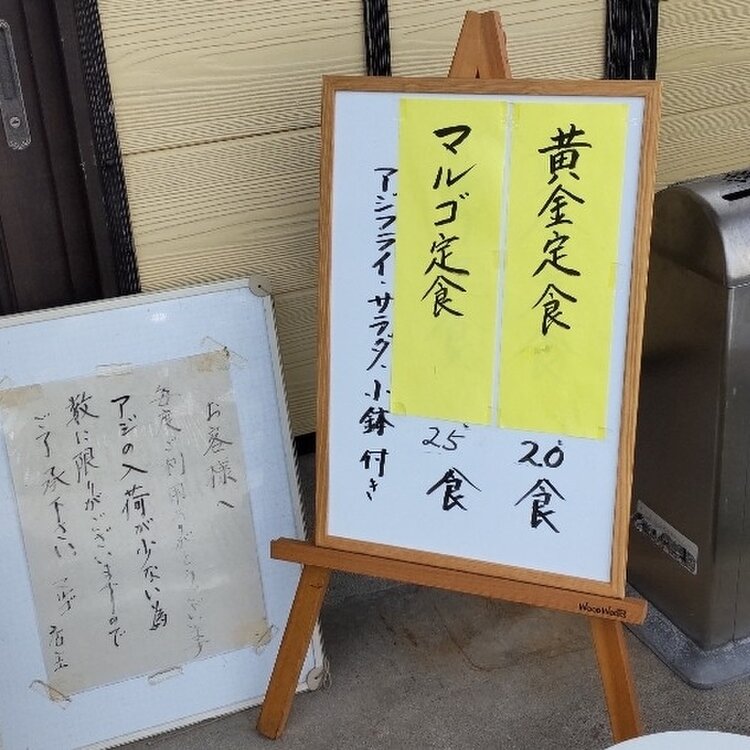 黄金定食
20食
マルゴ定食
25食
アジフライ・サラダ・小鉢付き
WOODWOOD
お客様へ
毎度ご利用ありがとうございます
アジの入荷が少ない為
数に限りがございますので
ご了承下さい。
店主